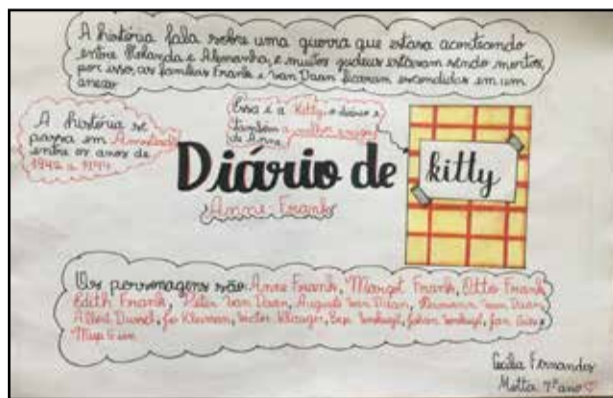 A história fala sobre uma guerra que estava acontecendo
entre Holanda e Alemanha, e muitos judeus estavam sendo mortos,
por isso, as famílias Frank e Van Daan ficaram escondidas em um
anexo
A história se
passa em
entre os anos de
1942 a 1944
Essa é a Kitty, o diário e
também a melhor amiga
de Anne.
Diário de
Anne Frank
kitty
Os personagens são: Anne Frank, Margot Frank, Otto Frank
Edith Frank, Peter Van Daan, Auguste Van Daan, Hermann Van Daan,
Albert Dussel, Jo Kleiman, Victor Klauger, Bep Voskuijl, Johan Voskuijl, Jan Gies,
Miep Gies
Cecília Fernandes
Motta 7º ano